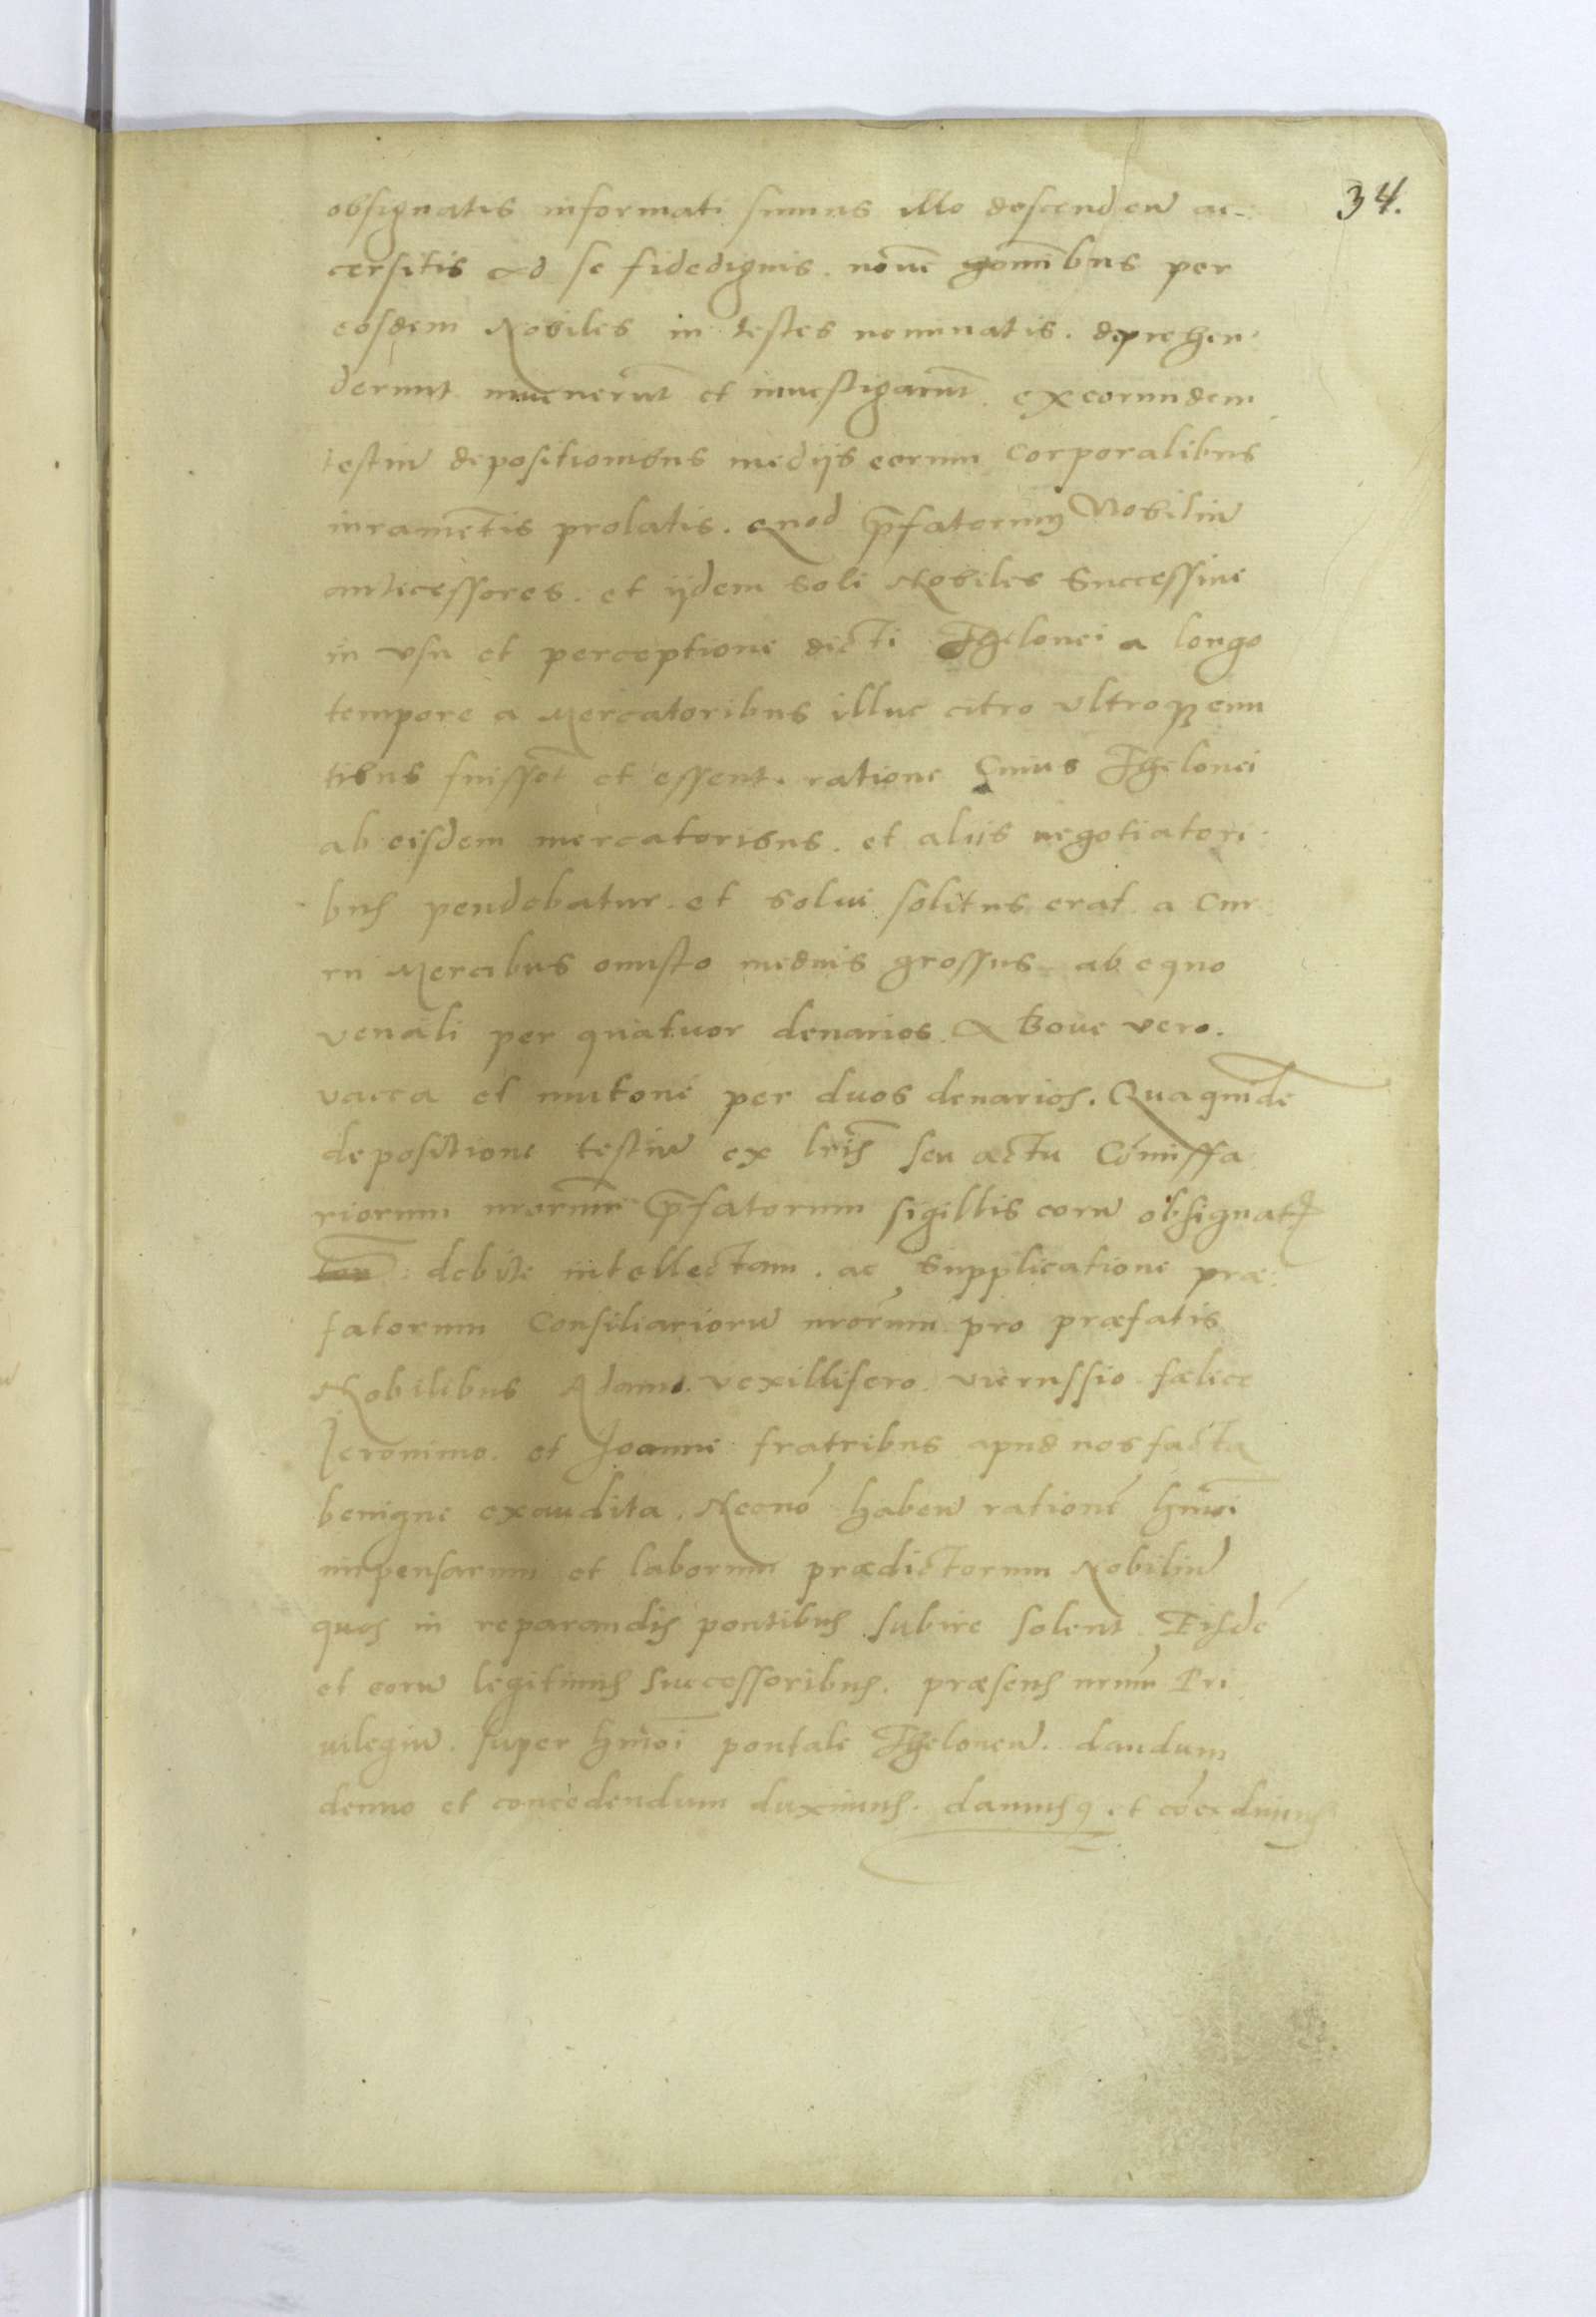 34.
obsignatis informati sumus illo descenden̄ ac-
cersitis ad se fidedignis. novē hominibus per
eosdem Nobiles in testes nominatis. deprehen-
derunt invenerūt et investigarūt ex eorumdem
testiū depositionibus medijs eorum Corporalibus
iuramētis prolatis. quod p̄fatorum Nobiliū
antecessores. et ijdem soli Nobiles Successive
in vsu et perceptione dicti Thelonei a longo
tempore a Mercatoribus illuc citro vltroqȝ eun
tibus fuissēt et essent. ratione Cuius Thelonei
ab eisdem mercatoribus. et aliis negotiatori-
bus pendebatur. et solvi solitus erat a Cur
ru Mercibus onusto medius grossus ab equo
venali per quatuor denarios a Bove vero.
vacca et mutone per duos denarios. Qua quidē
depositione testiū ex lrīs seu actu Cōmissa
riorum nrorum p̄fatorum sigillis eorū obsignat
debite intellectam. ac Supplicatione præ-
fatorum Consiliariorū nrōrum pro præfatis
Nobilibus Adamo. vexillifero. fælice
Jeronimo. et Joanne fratribus apud nos facta
benigne exaudita. Necnō haben̄ rationē hmōi
impensarum et laborum prædictorum Nobiliū
quos in reparandis pontibus subire solent. Eisdē
et eorū legitimis Successoribus. præsens nrūm Pri
vilegiū. super hmōi pontale Theloneū. dandum
denuo et concedendum duximus. damusqȝ et cōcedimus